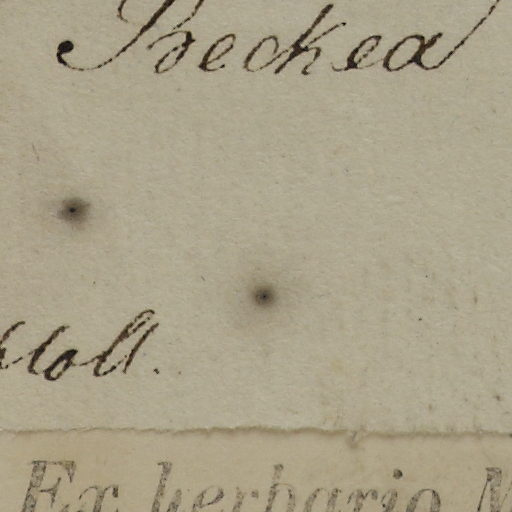 Beckea
Moll.
Ex herbario M